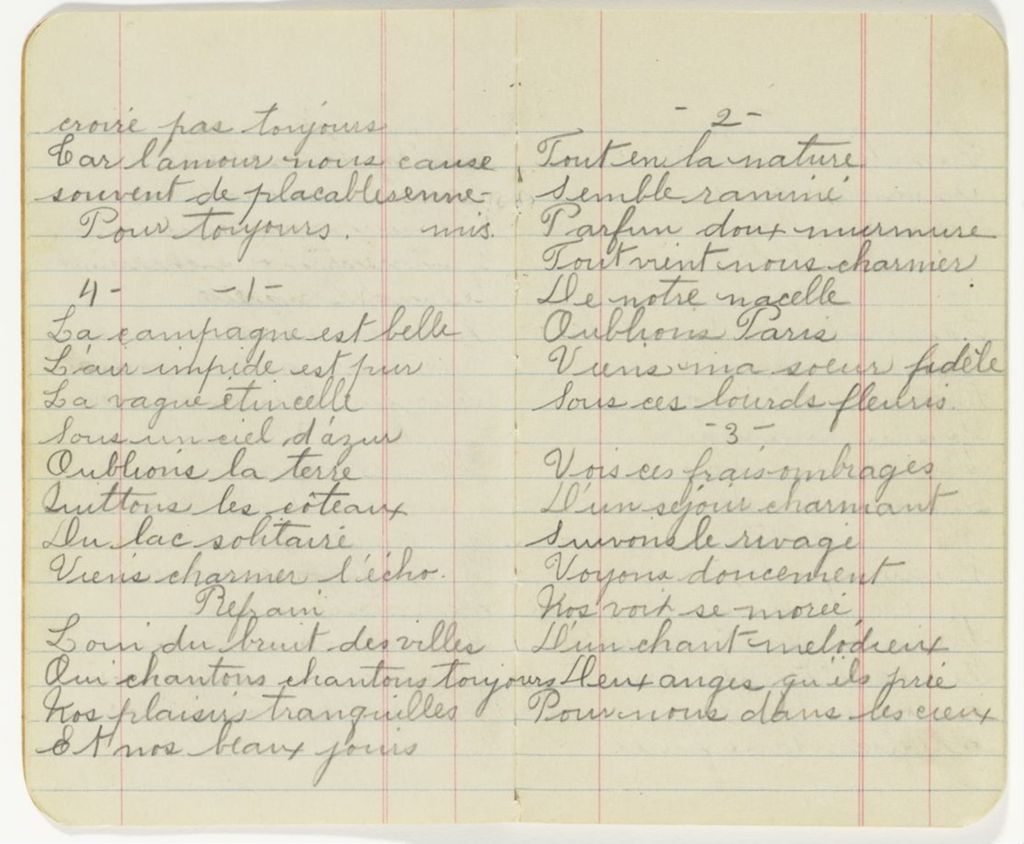 croiré pas toujours
Car l'amour nous cause
souvent de placablesenne-
Pour toujours. mis.
4- -1-
La campagne est belle
L'air impide est pur
La vague étincelle
Sous un ciel d'azur
Oublions la terre
Quittons les côteaux
Du lac solitaire
Viens charmer l'écho.
Refrain
Loin du bruit des villes
Oui chantons chantons toujours
Nos plaisirs tranquilles
Et nos beaux jours
- 2 -
Tout en la nature
Semble ranimé
Parfun doux murmure
Tout vient nous charmer
De notre nacelle
Oublions Paris
Viens ma soeur fidèle
Sous ces lourds fleuris.
- 3 -
Vois ces frais ombrages
D'un séjour charmant
Suivons le rivage
Voyons doucement
Nos voix se morée
D'un chant melodieux
Deux anges qu'ils prie
Pour nous dans les cieux